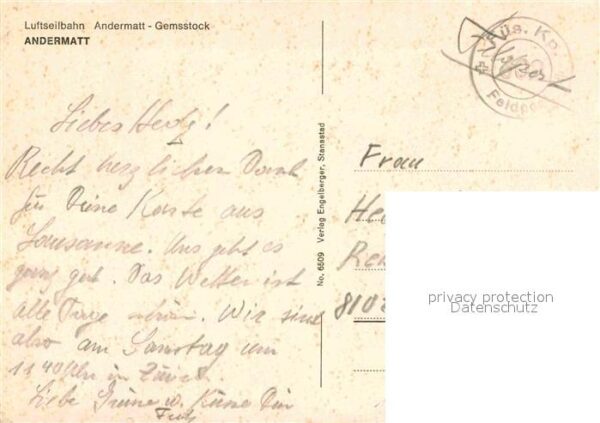 Luftseilbahn Andermatt - Gemsstock
ANDERMATT
Füs. Kp.
Feldpost
Liebes Hedy!
Recht herzlichen Dank
für Deine Karte aus
Lausanne. Uns geht es
ganz gut. Das Wetter ist
alle Tage schön. Wir sind
also am Samstag um
1140 Uhr in Zürich.
Liebe Grüsse u. Küsse Dein
No. 6509 Verlag Engelberger, Stansstad
Frau
He
810
privacy protection
Datenschutz